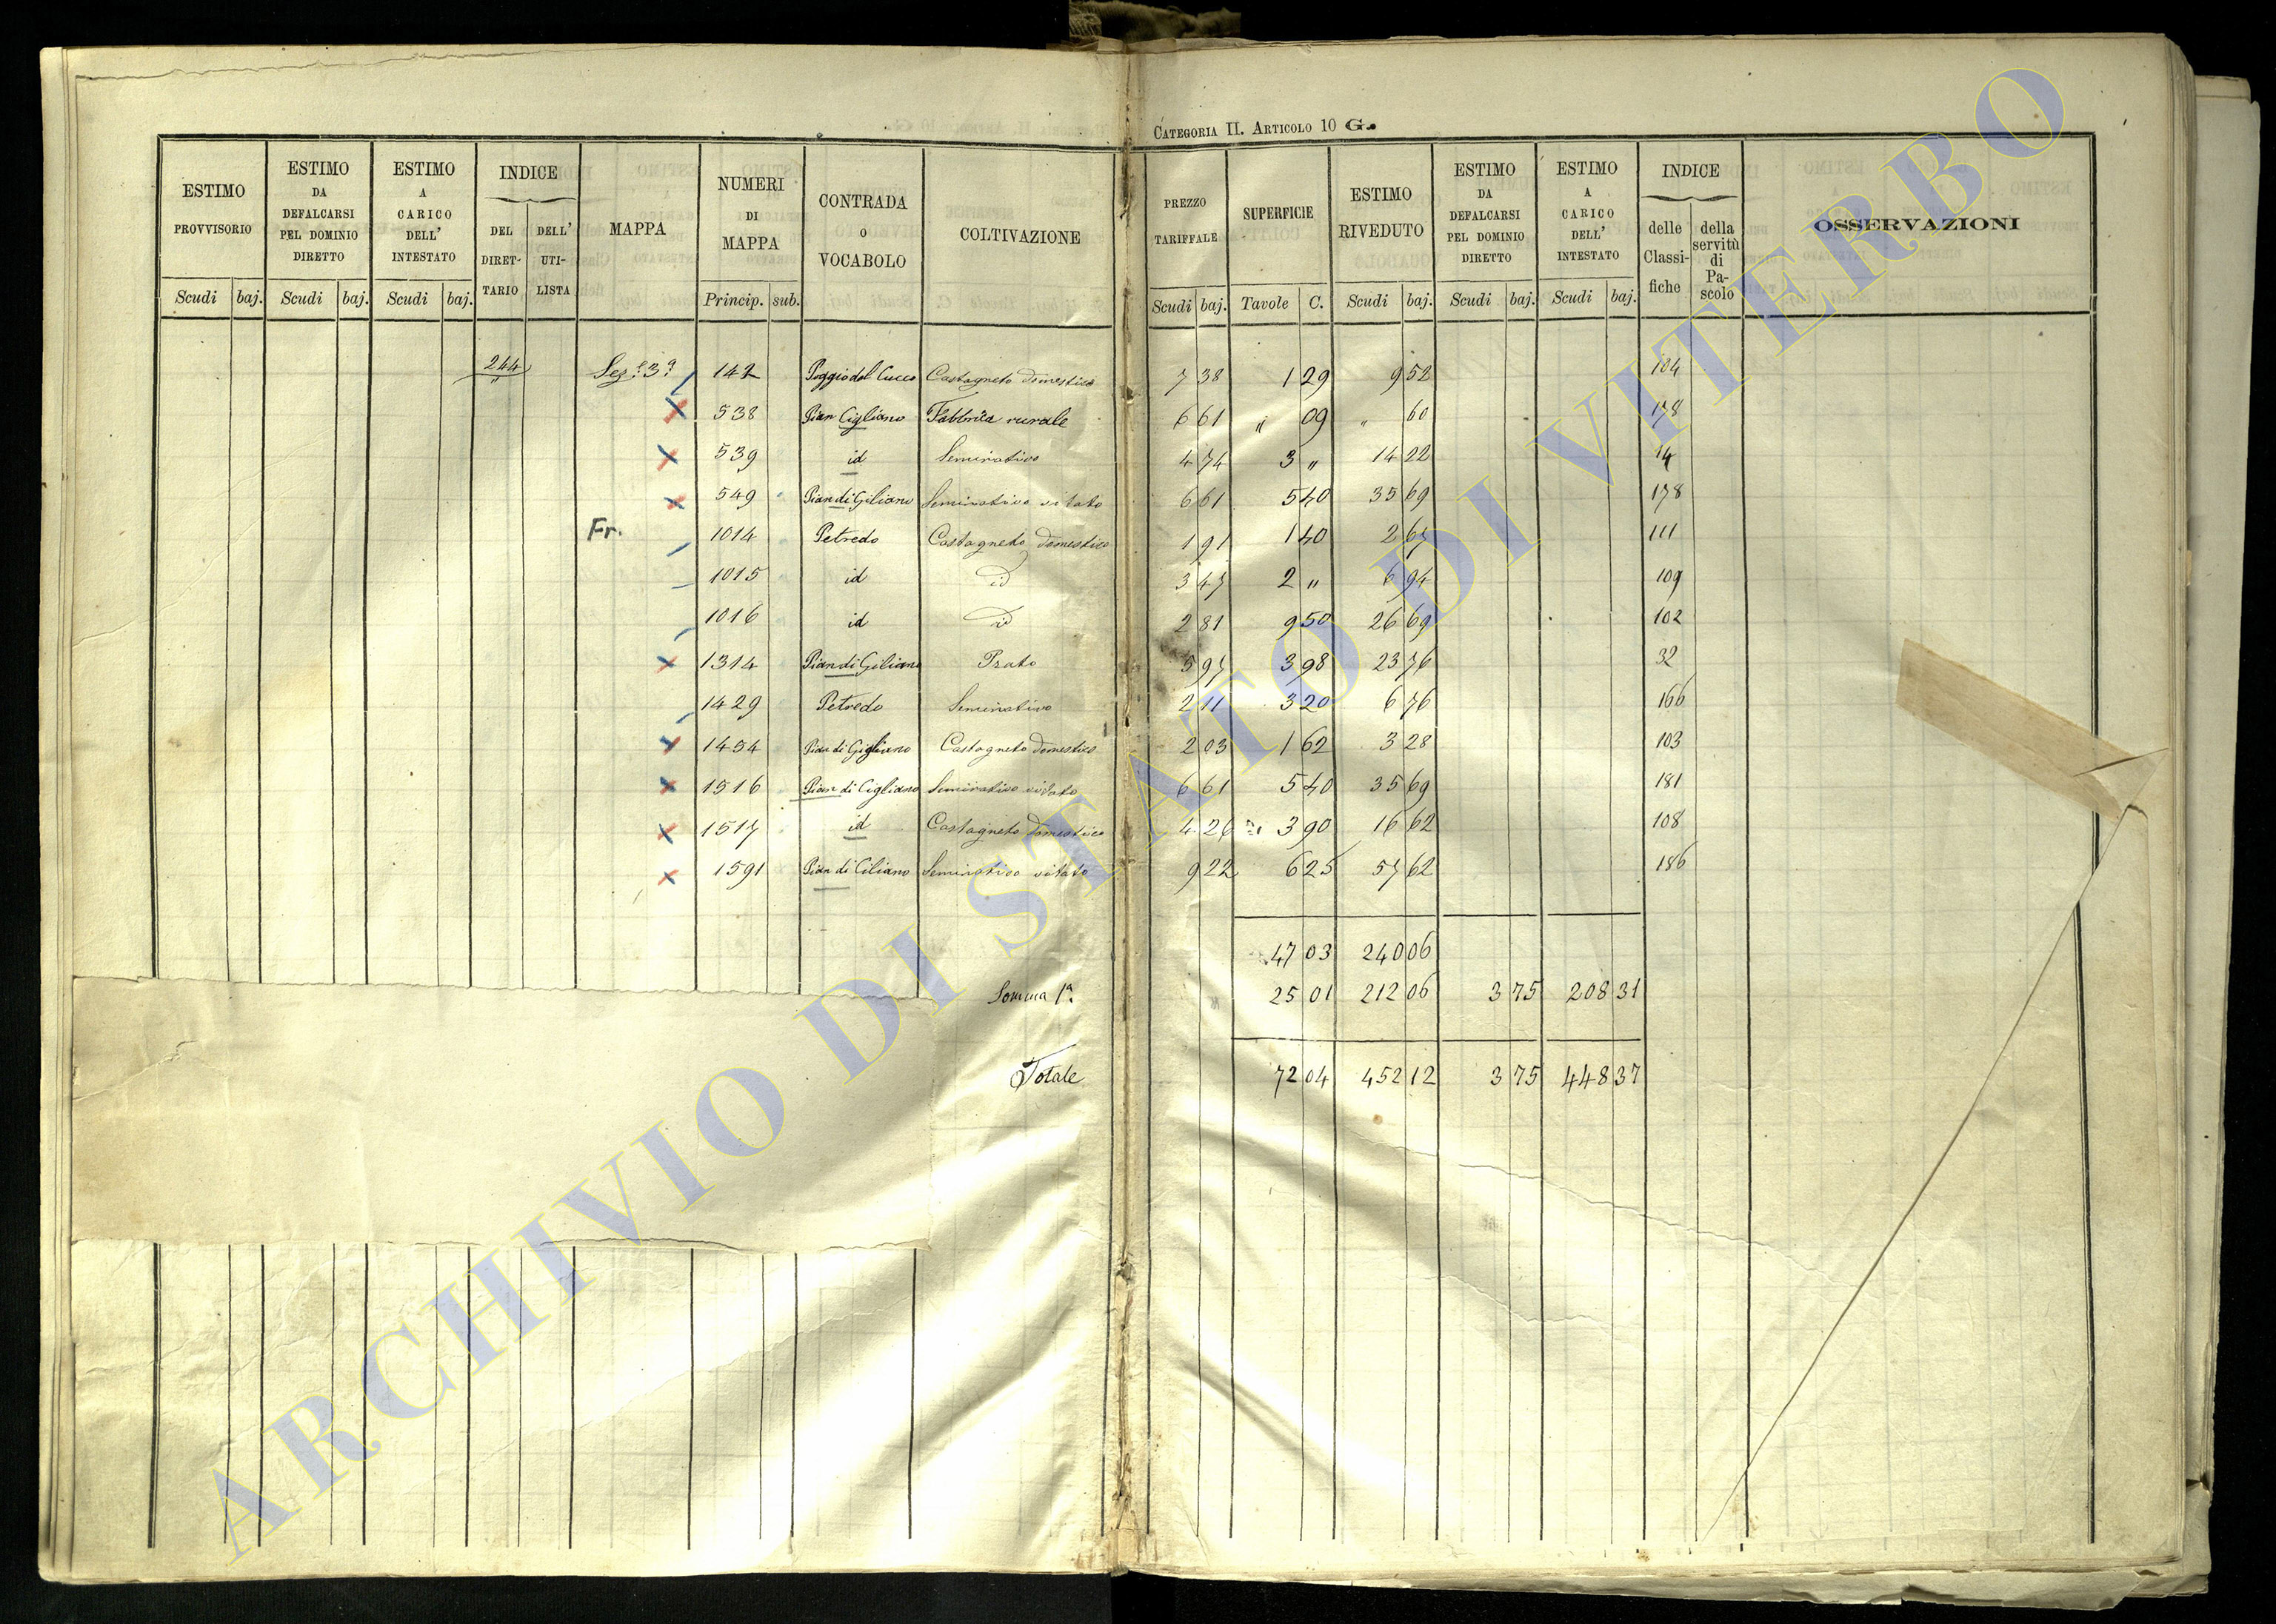 CATEGORIA II. ARTICOLO 10 G.
ESTIMO PROVVISORIO Scudi baj.
ESTIMO DA DEFALCARSI PEL DOMINIO DIRETTO Scudi baj.
ESTIMO A CARICO DELL' INTESTATO Scudi baj.
INDICE DEL DIRETTARIO DELL' UTILISTA
MAPPA
NUMERI DI MAPPA Princip. sub.
CONTRADA O VOCABOLO
COLTIVAZIONE
PREZZO TARIFFALE Scudi baj.
SUPERFICIE Tavole C.
ESTIMO RIVEDUTO Scudi baj.
ESTIMO DA DEFALCARSI PEL DOMINIO DIRETTO Scudi baj.
ESTIMO A CARICO DELL' INTESTATO Scudi baj.
INDICE delle Classifiche della servitù di Pascolo
OSSERVAZIONI
244 Sez.e 3a 142 Poggio del Cucco Castagneto domestico 7 38 1 29 9 52 104
538 Pian Cigliano Fabbrica rurale 6 61 " 09 " 60 178
539 id Seminativo 4 74 3 " 14 22 14
549 Pian di Giliano Seminativo vitato 6 61 5 40 35 69 178
Fr. 1014 Petredo Castagneto domestico 1 91 1 40 2 67 111
1015 id id 3 47 2 " 6 94 109
1016 id id 2 81 9 50 26 69 102
1314 Pian di Giliano Prato 5 97 3 98 23 76 32
1429 Petredo Seminativo 2 11 3 20 6 76 166
1454 Pian di Gigliano Castagneto domestico 2 03 1 62 3 28 103
1516 Pian di Cigliano Seminativo vitato 6 61 5 40 35 69 181
1517 id Castagneto domestico 4 26 3 90 16 62 108
1591 Pian di Ciliano Seminativo vitato 9 22 6 25 57 62 186
47 03 240 06
Somma 1a. 25 01 212 06 3 75 208 31
Totale 72 04 452 12 3 75 448 37
ARCHIVIO DI STATO DI VITERBO